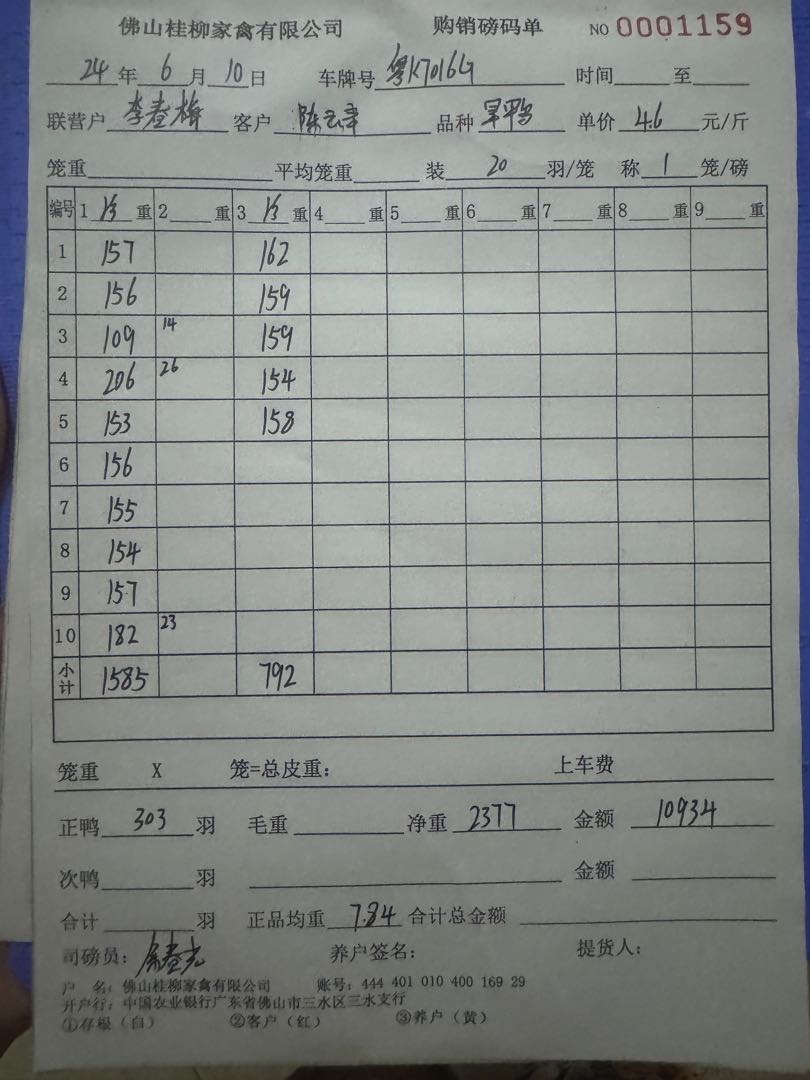 佛山桂柳家禽有限公司 购销磅码单 NO 0001159
24年6月10日 车牌号 粤K7016G 时间 至
联营户 李春梅 客户 陈 品种 旱鸭 单价 4.6 元/斤
笼重 平均笼重 装 20 羽/笼 称 1 笼/磅
编号 1 重 2 重 3 重 4 重 5 重 6 重 7 重 8 重 9 重
1 157 162
2 156 159
3 109 14 159
4 206 26 154
5 153 158
6 156
7 155
8 154
9 157
10 182 23
小计 1585 792
笼重 X 笼=总皮重: 上车费
正鸭 303 羽 毛重 净重 2377 金额 10934
次鸭 羽 金额
合计 羽 正品均重 7.84 合计总金额
司磅员: 养户签名: 提货人:
户 名: 佛山桂柳家禽有限公司 账号: 444 401 010 400 169 29
开户行: 中国农业银行广东省佛山市三水区三水支行
①存根（白） ②客户（红） ③养户（黄）